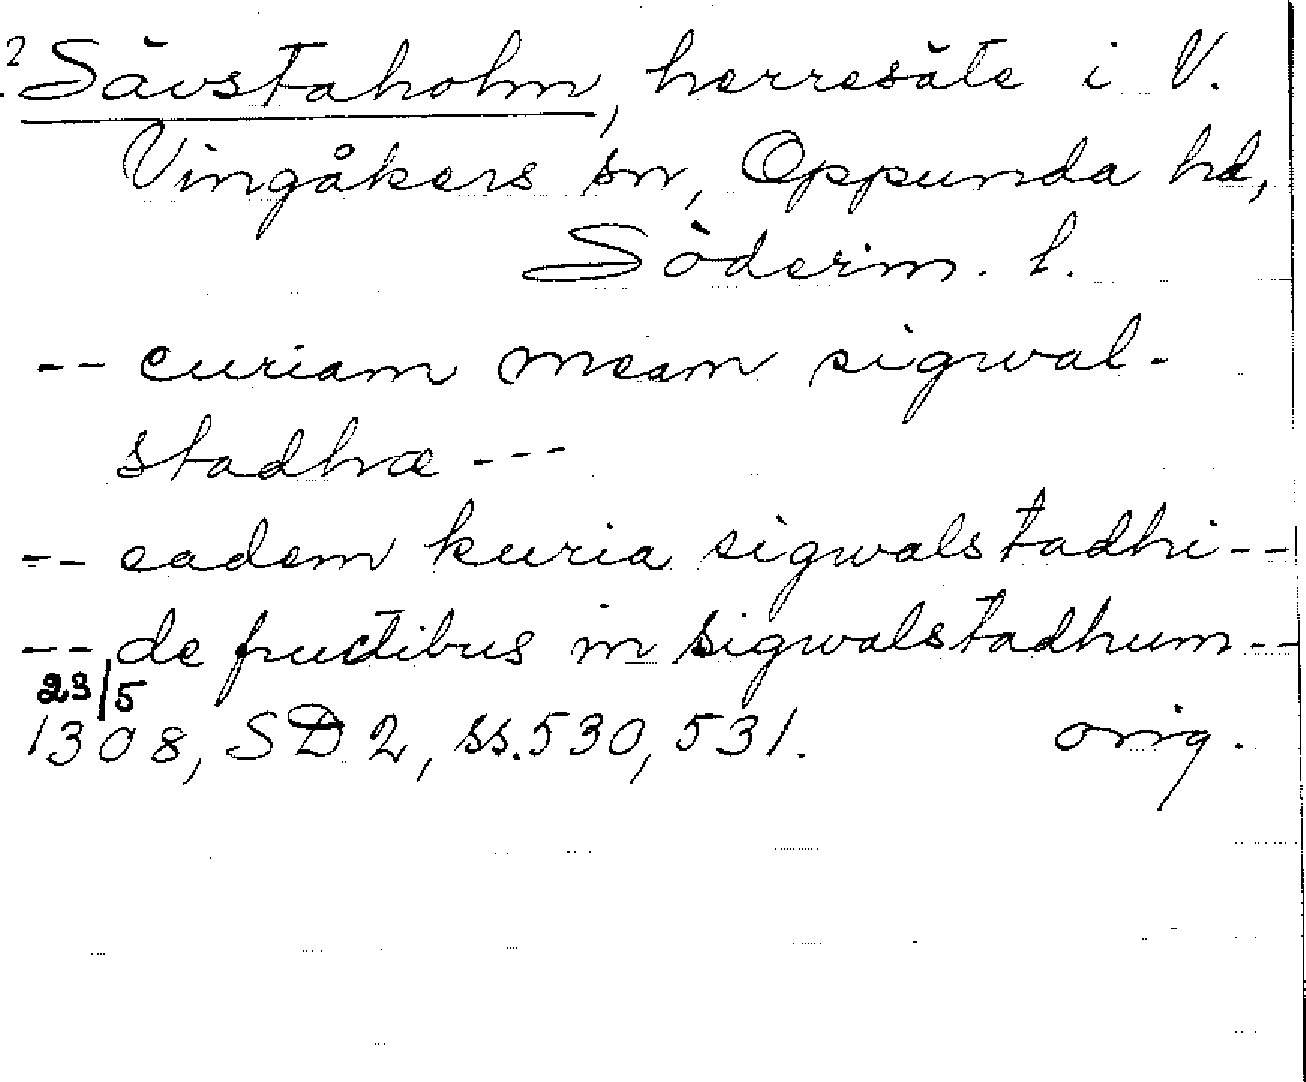 ? Sävstaholm, herresäte i V.
Vingåkers sn, Oppunda hd,
Söderm. l.
-- curiam meam sigwal-
stadhæ ---
-- eadem kuria sigwalstadhi --
-- de fructibus in sigwalstadhum --
23/5
1308, SD 2, ss. 530, 531. orig.